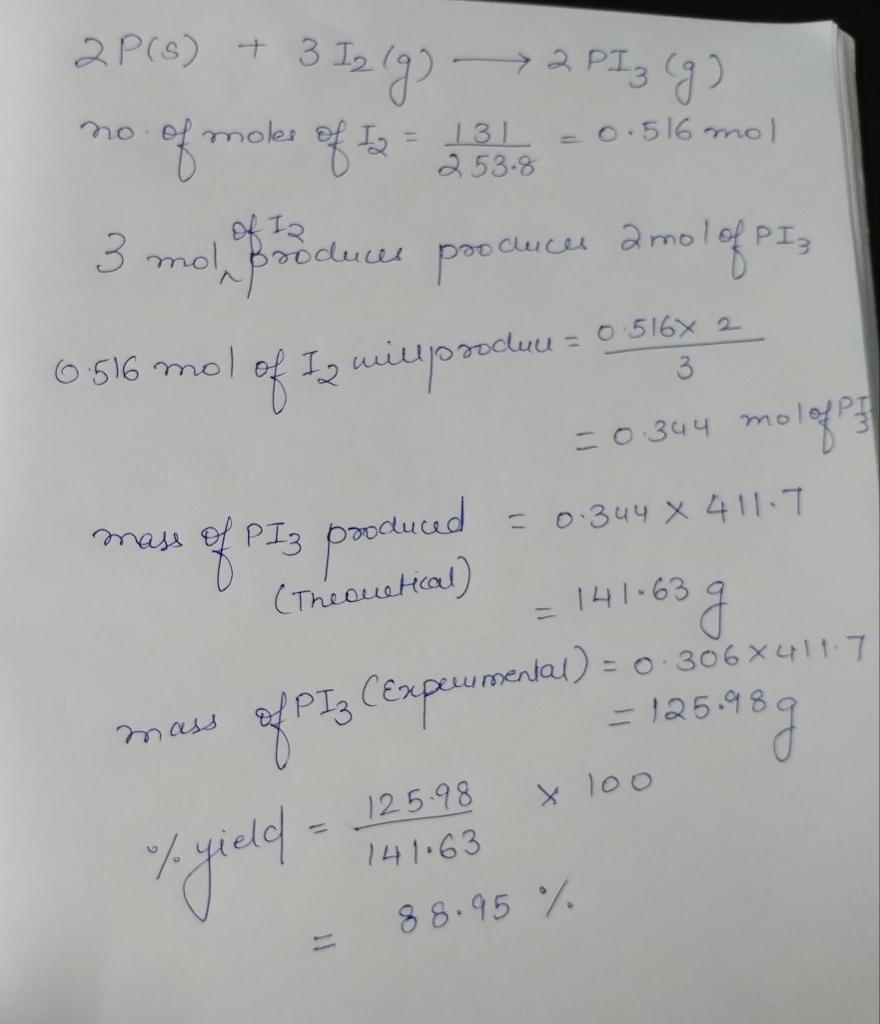 2P(s) + 3I₂(g) ⟶ 2PI₃(g)
no. of moles of I₂ = 131/253.8 = 0.516 mol
3 mol of I₂ produces produces 2mol of PI₃
0.516 mol of I₂ will produce = 0.516 × 2 / 3
= 0.344 mol of PI₃
mass of PI₃ produced = 0.344 × 411.7
(Theoretical)
= 141.63 g
mass of PI₃ (Experimental) = 0.306 × 411.7
= 125.98 g
% yield = 125.98/141.63 × 100
= 88.95 %